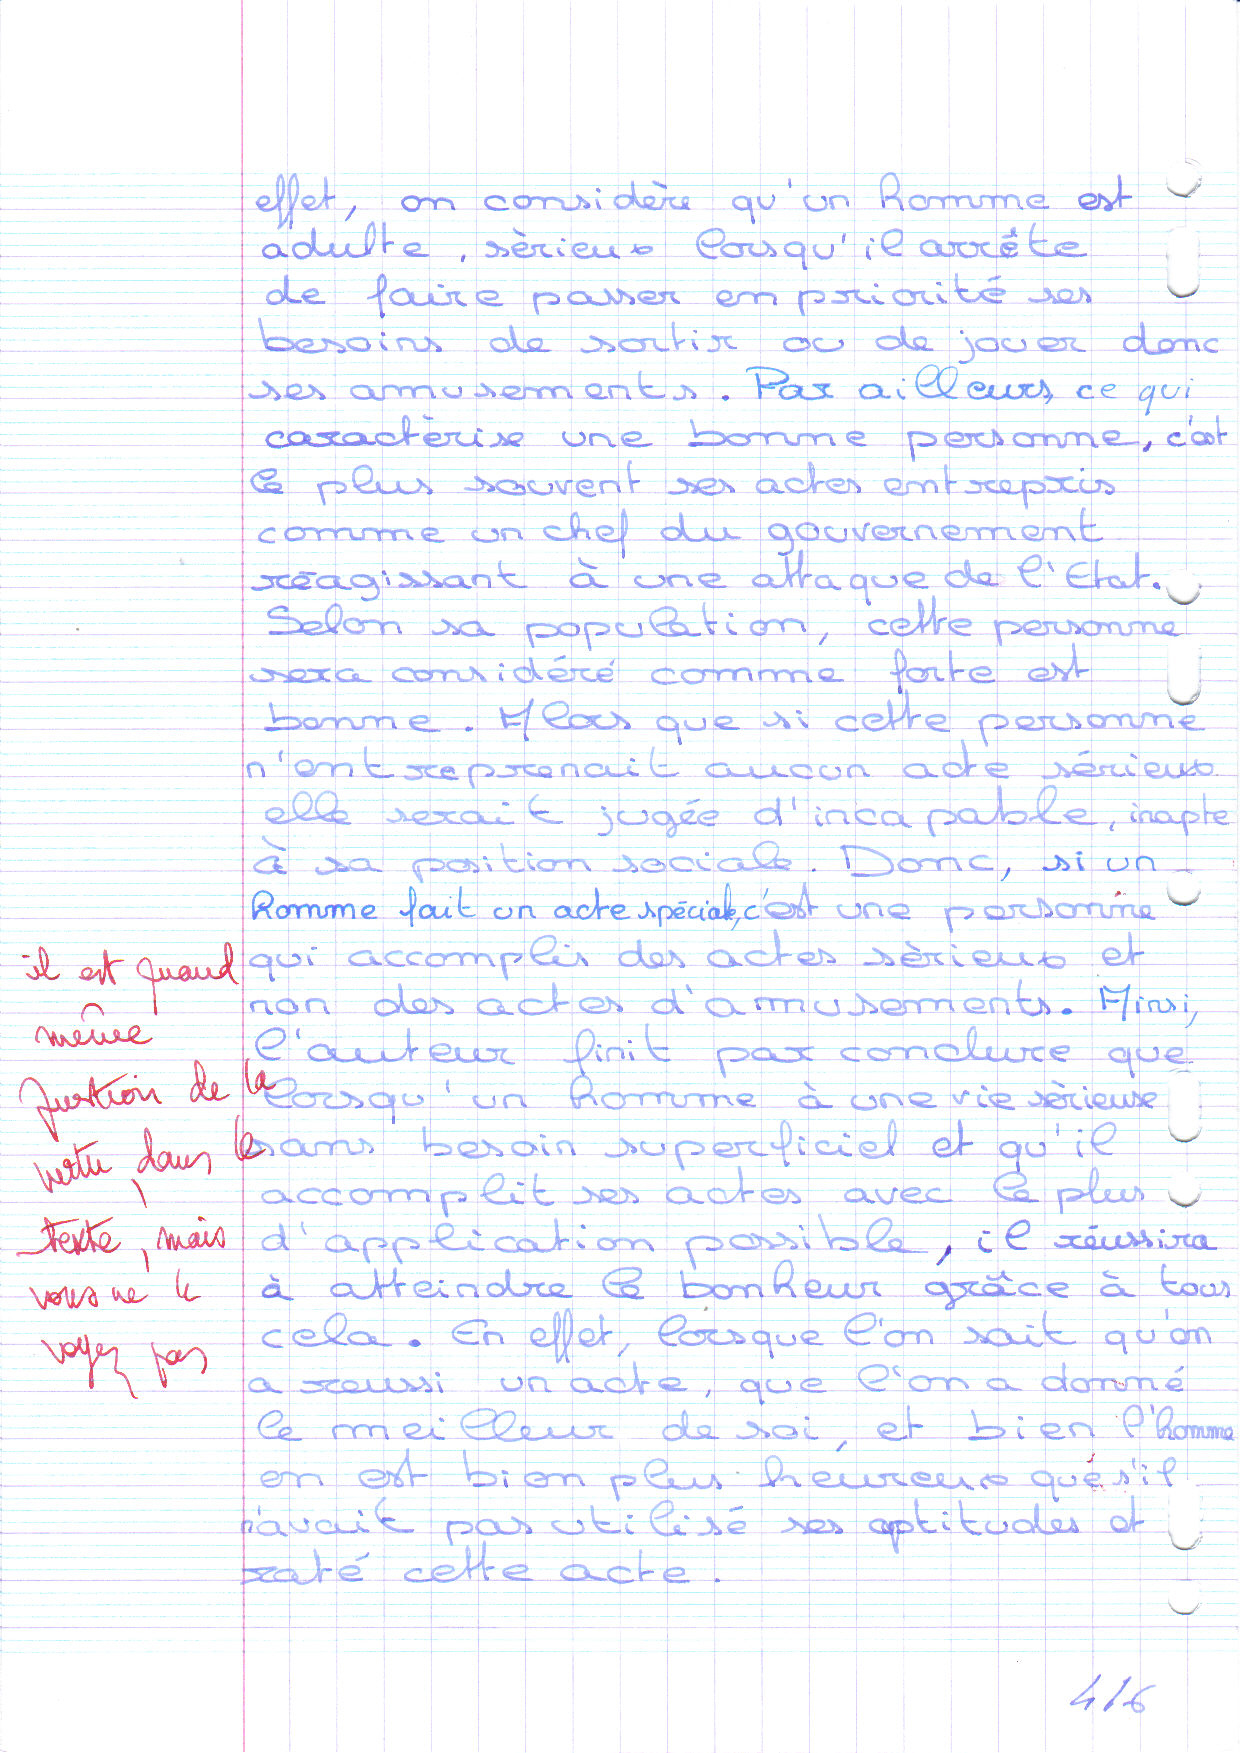 effet, on considère qu'un homme est
adulte, sèrieux lorsqu'il arrête
de faire passer en priorité ses
besoins de sortir ou de jouer donc
ses amusements. Par ailleurs, ce qui
caractèrise une bonne personne, c'est
le plus souvent ses actes entrepris
comme un chef du gouvernement
réagissant à une attaque de l'Etat.
Selon sa population, cette personne
sera considéré comme forte est
bonne. Alors que si cette personne
n'entreprenait aucun acte sérieux
elle serait jugée d'incapable, inapte
à sa position sociale. Donc, si un
homme fait un acte spéciale, c'est une personne
qui accomplis des actes sèrieux et
non des actes d'amusements. Ainsi,
l'auteur finit par conclure que
lorsqu'un homme à une vie sèrieuse
sans besoin superficiel et qu'il
accomplit ses actes avec le plus
d'application possible, il réussira
à atteindre le bonheur grâce à tous
cela. En effet, lorsque l'on sait qu'on
a reussi un acte, que l'on a donné
le meilleur de soi, et bien l'homme
en est bien plus heureux que s'il
n'avait pas utilisé ses aptitudes et
raté cette acte.
il est quand
même
question de la
vertu, dans le
texte, mais
vous ne le
voyez pas
4/6